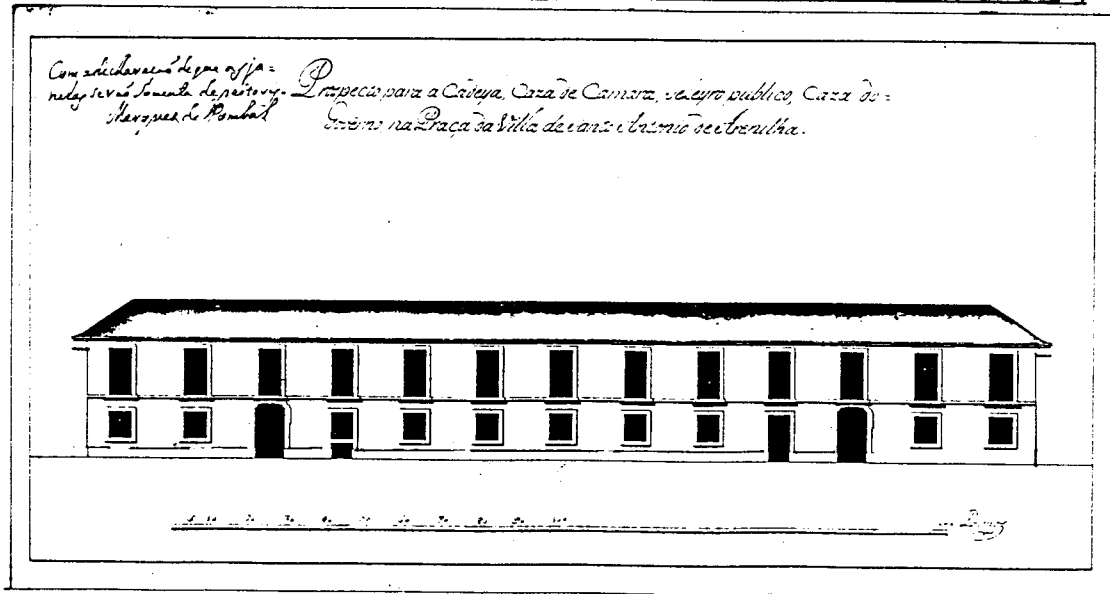 Com adeclaração de que as ja=
nelas serão somente de peitoris.
Marques de Pombal
Prospecto para a Cadeya, Caza de Camara, seleyro publico, Caza do=
Governo na Praça da Villa de Santo Antonio de Arenilha.
10 20 30 40 50 60 70 80 90 100